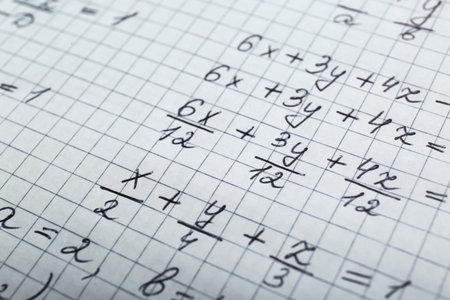 = 1
y/b
a
6x + 3y + 4z -
= 1
6x + 3y + 4z =
6x/12 + 3y/12 + 4z/12 =
x/2 + y/4 + z/3 = 1
a = 2,